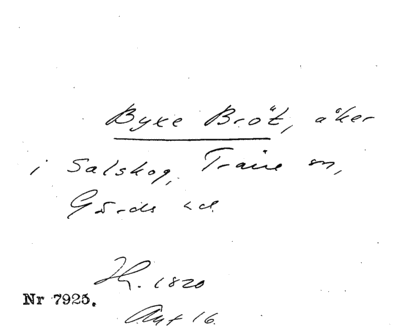 Byxe Bröt, åker
i Salskog, Traine sn,
Gärds hd.
H. 1820
Nr 7925.
Akt 16.